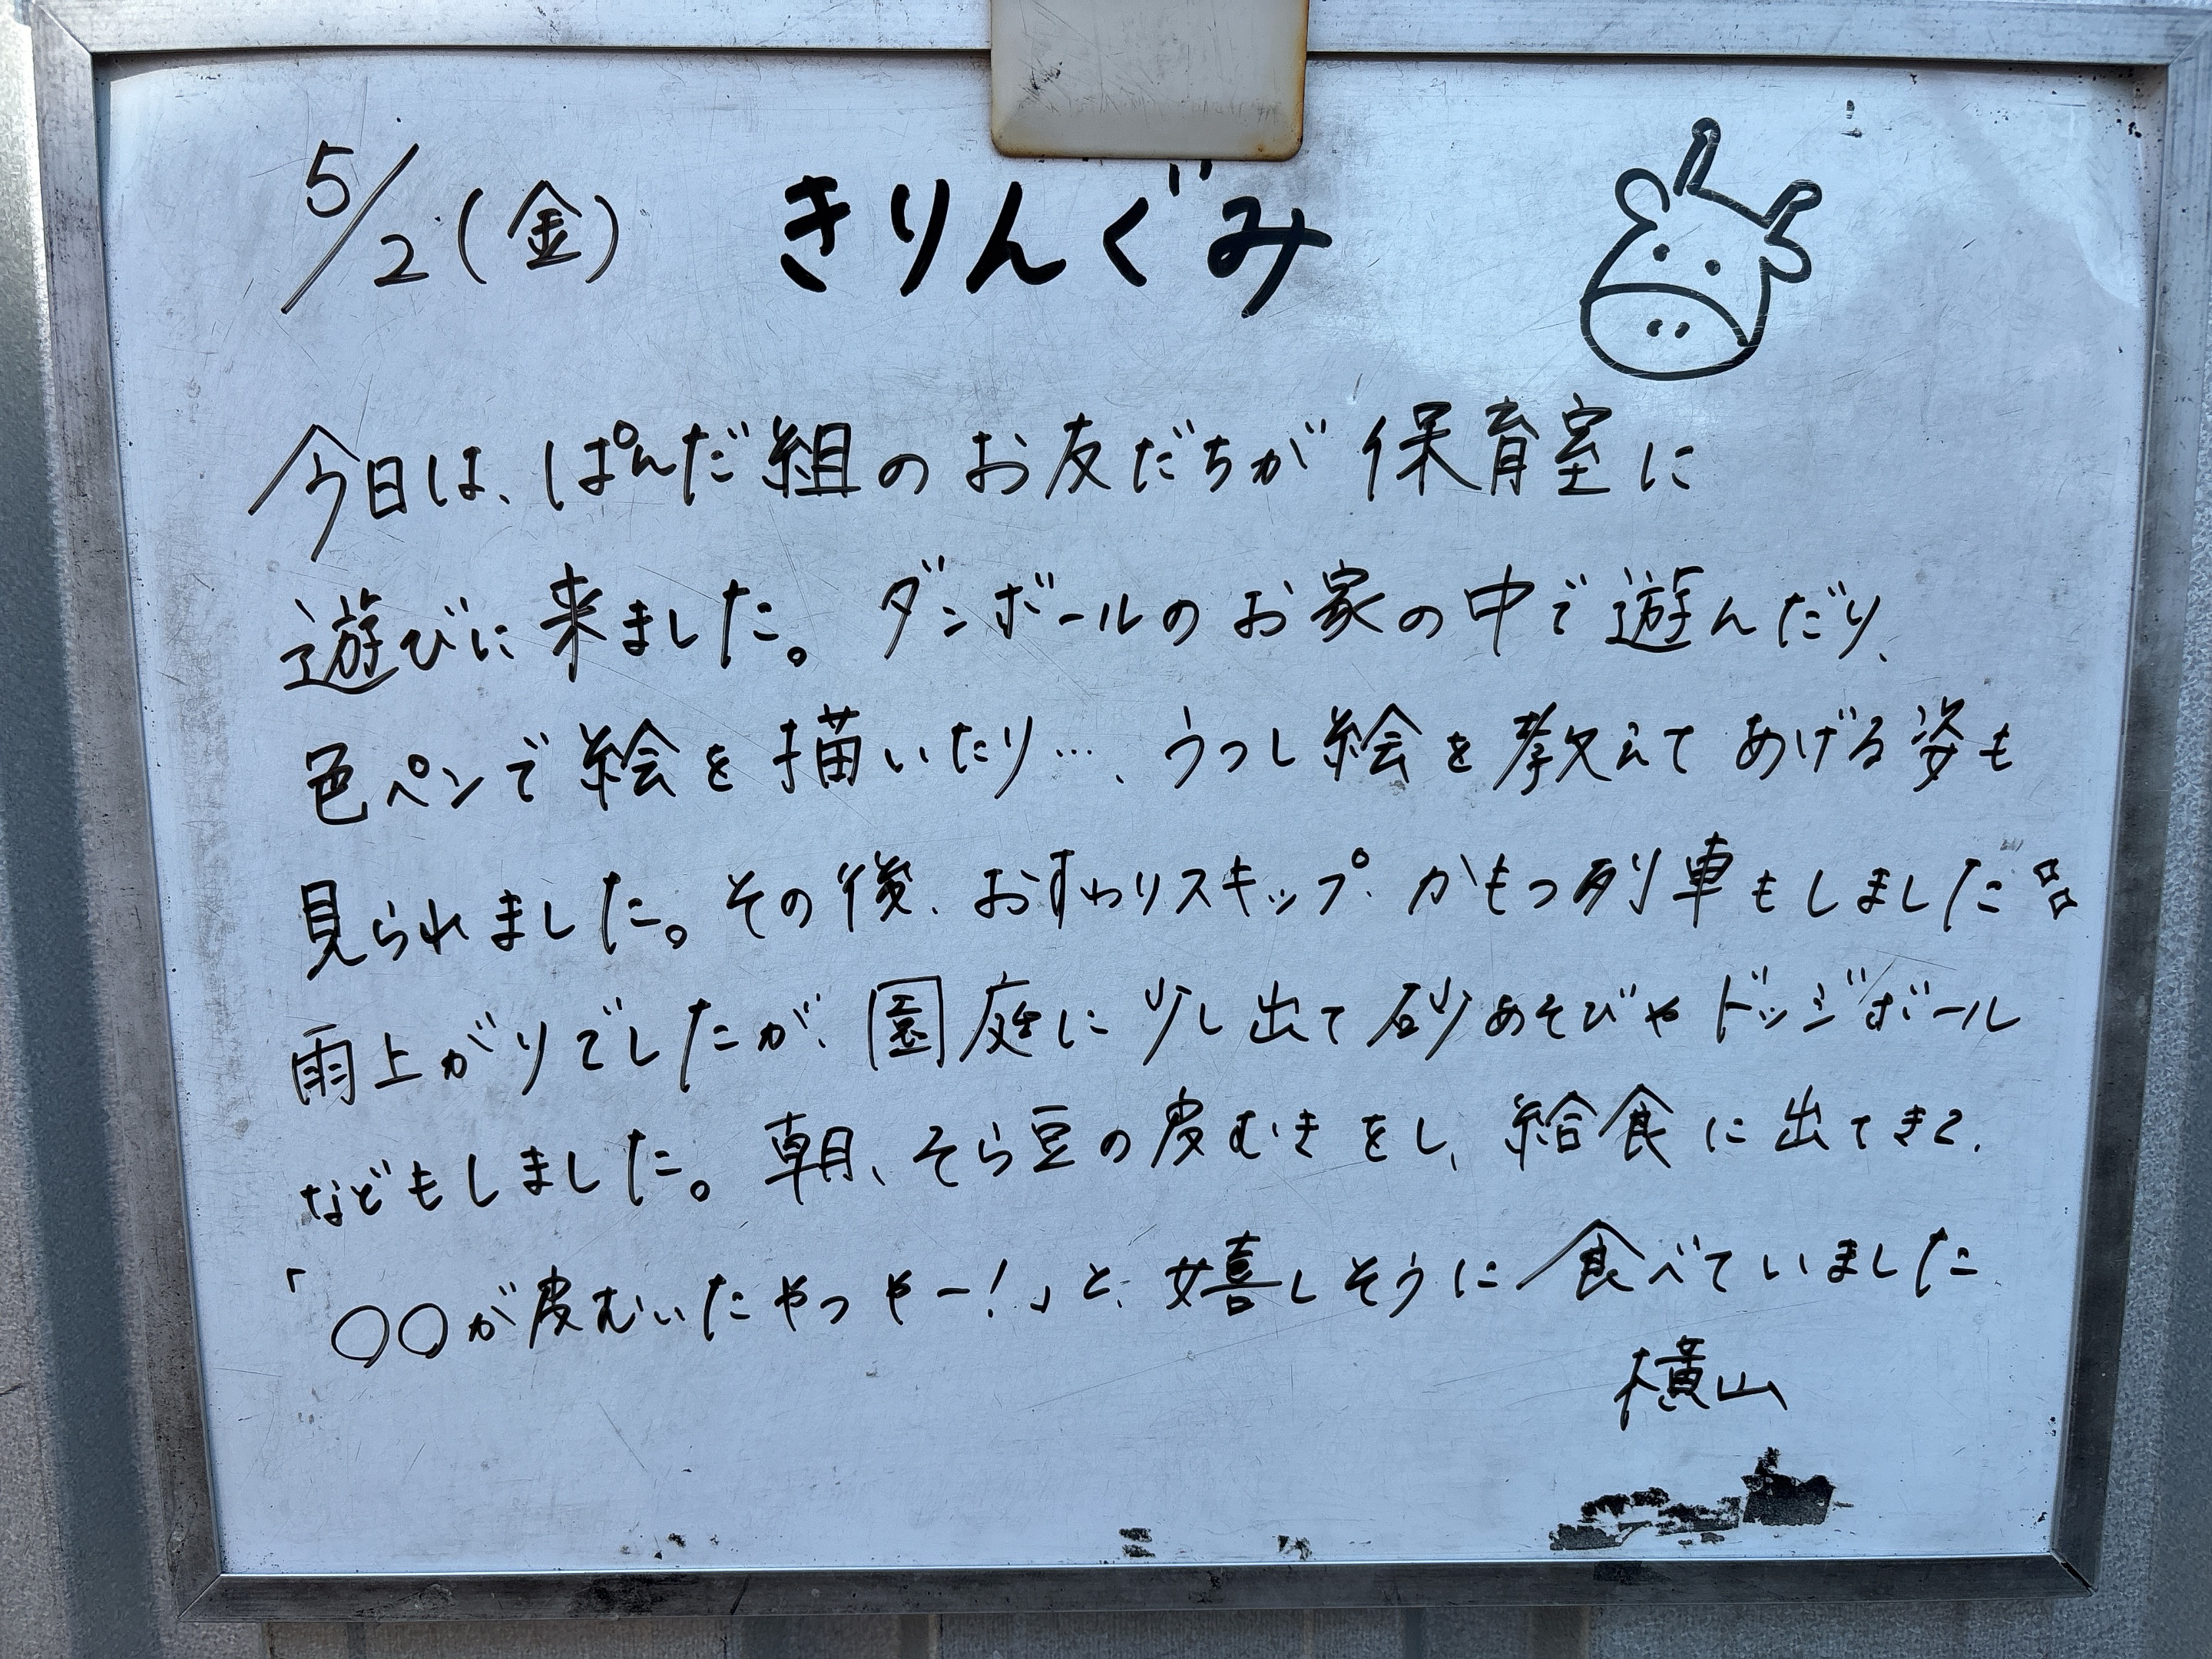 5/2(金) きりんぐみ
今日は、ぱんだ組のお友だちが保育室に
遊びに来ました。ダンボールのお家の中で遊んだり、
色ペンで絵を描いたり…、うつし絵を教えてあげる姿も
見られました。その後、おすわりスキップ、かもつ列車もしました
雨上がりでしたが、園庭に少し出て砂あそびやドッジボール
などもしました。朝、そら豆の皮むきをし、給食に出てきて、
「〇〇が皮むいたやつやー!」と、嬉しそうに食べていました
横山